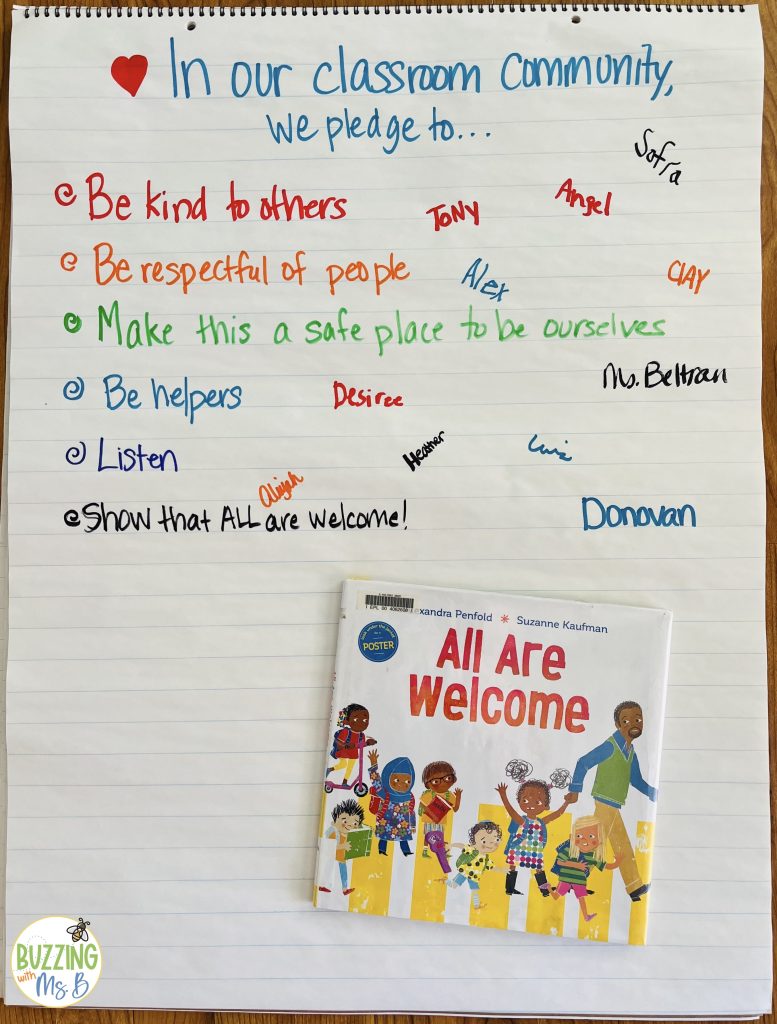 In our classroom community,
we pledge to...
Sofia
Be kind to others
Tony
Angel
Be respectful of people
Alex
CLAY
Make this a safe place to be ourselves
Be helpers
Desiree
Ms. Beltran
Listen
Heather
Luiz
Alijah
Show that ALL are welcome!
Donovan
exandra Penfold * Suzanne Kaufman
POSTER
All Are
Welcome
BUZZING
with
Ms. B